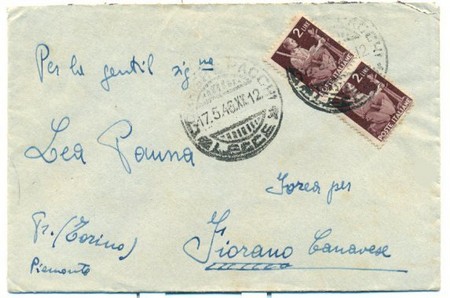 Per la gentil sig.ne
Lea Pauna
Ivrea per
Fiorano Canavese
Pr. (Torino)
Piemonte
PACCHI
17.5.46.XII.12
LECCE
2 LIRE
POSTE ITALIANE
2 LIRE
POSTE ITALIANE